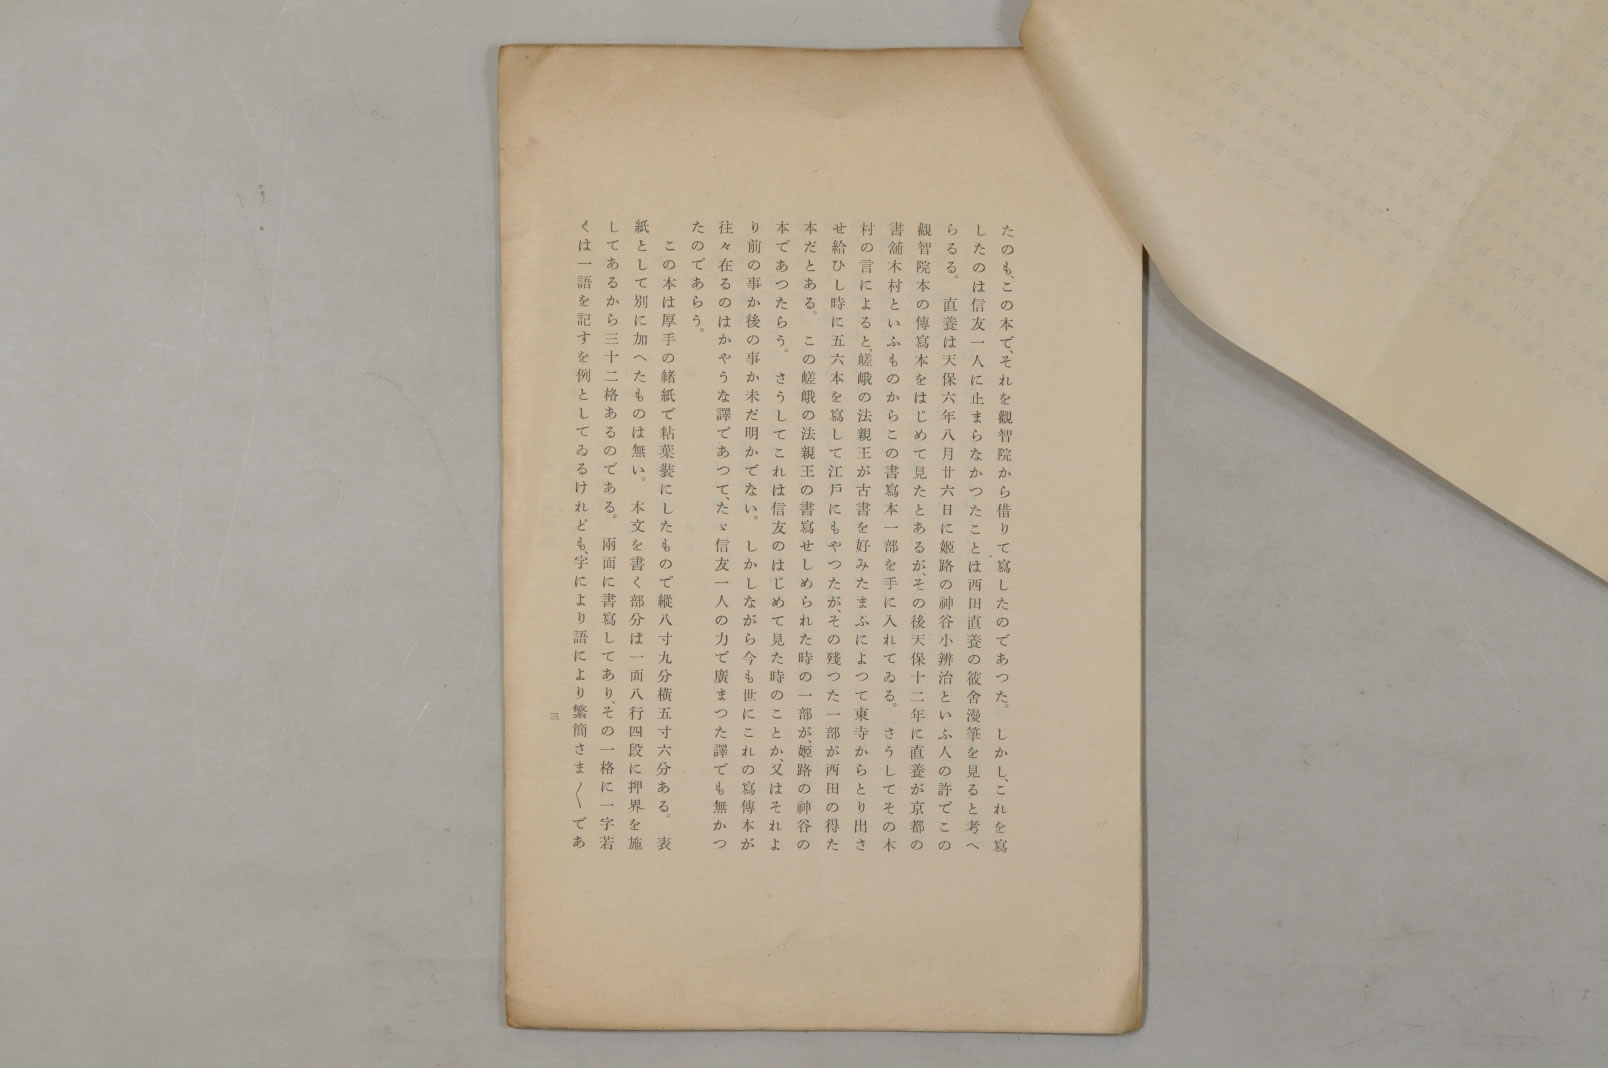 たのも、この本で、それを觀智院から借りて寫したのであつた。しかし、これを寫
したのは信友一人に止まらなかつたことは西田直養の筱舍漫筆を見ると考へ
らるる。直養は天保六年八月廿六日に姫路の神谷小辨治といふ人の許でこの
觀智院本の傳寫本をはじめて見たとあるが、その後天保十二年に直養が京都の
書舗木村といふものからこの書寫本一部を手に入れてゐる。さうしてその木
村の言によると、嵯峨の法親王が古書を好みたまふによつて東寺からとり出さ
せ給ひし時に五六本を寫して江戸にもやつたが、その殘つた一部が西田の得た
本だとある。この嵯峨の法親王の書寫せしめられた時の一部が、姫路の神谷の
本であつたらう。さうしてこれは信友のはじめて見た時のことか、又はそれよ
り前の事か後の事か未だ明かでない。しかしながら今も世にこれの寫傳本が
往々在るのはかやうな譯であつて、たゞ信友一人の力で廣まつた譯でも無かつ
たのであらう。
この本は厚手の緒紙で粘葉裝にしたもので縱八寸九分横五寸六分ある。表
紙として別に加へたものは無い。本文を書く部分は一面八行四段に押界を施
してあるから三十二格あるのである。兩面に書寫してあり、その一格に一字若
くは一語を記すを例としてゐるけれども、字により語により繁簡さま〱であ
三